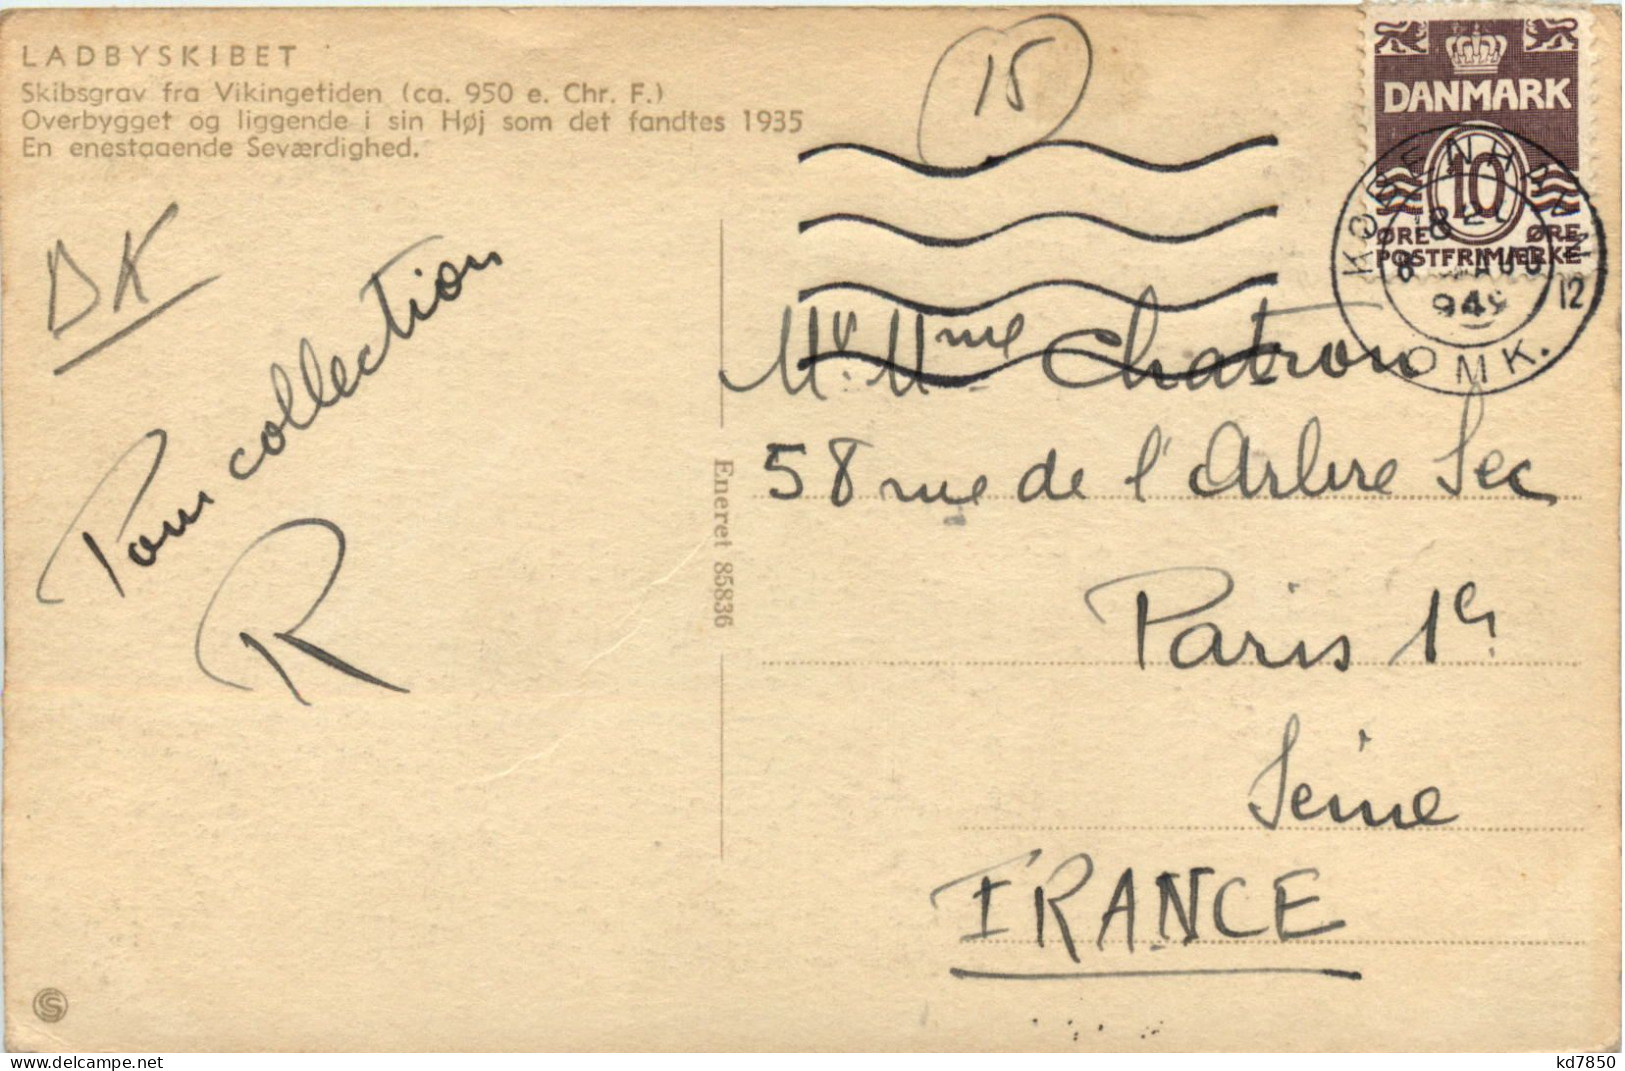 LADBYSKIBET
Skibsgrav fra Vikingetiden (ca. 950 e. Chr. F.)
Overbygget og liggende i sin Høj som det fandtes 1935
En enestaaende Seværdighed.
15
DANMARK
10
ØRE ØRE
POSTFRIMÆRKE
KØBENHAVN
OMK.
12
DK
Pour collection
R
Eneret 85836
Mr. Mme Chatron
58 rue de l'Arbre Sec
Paris 1er
Seine
FRANCE
S
kd7850